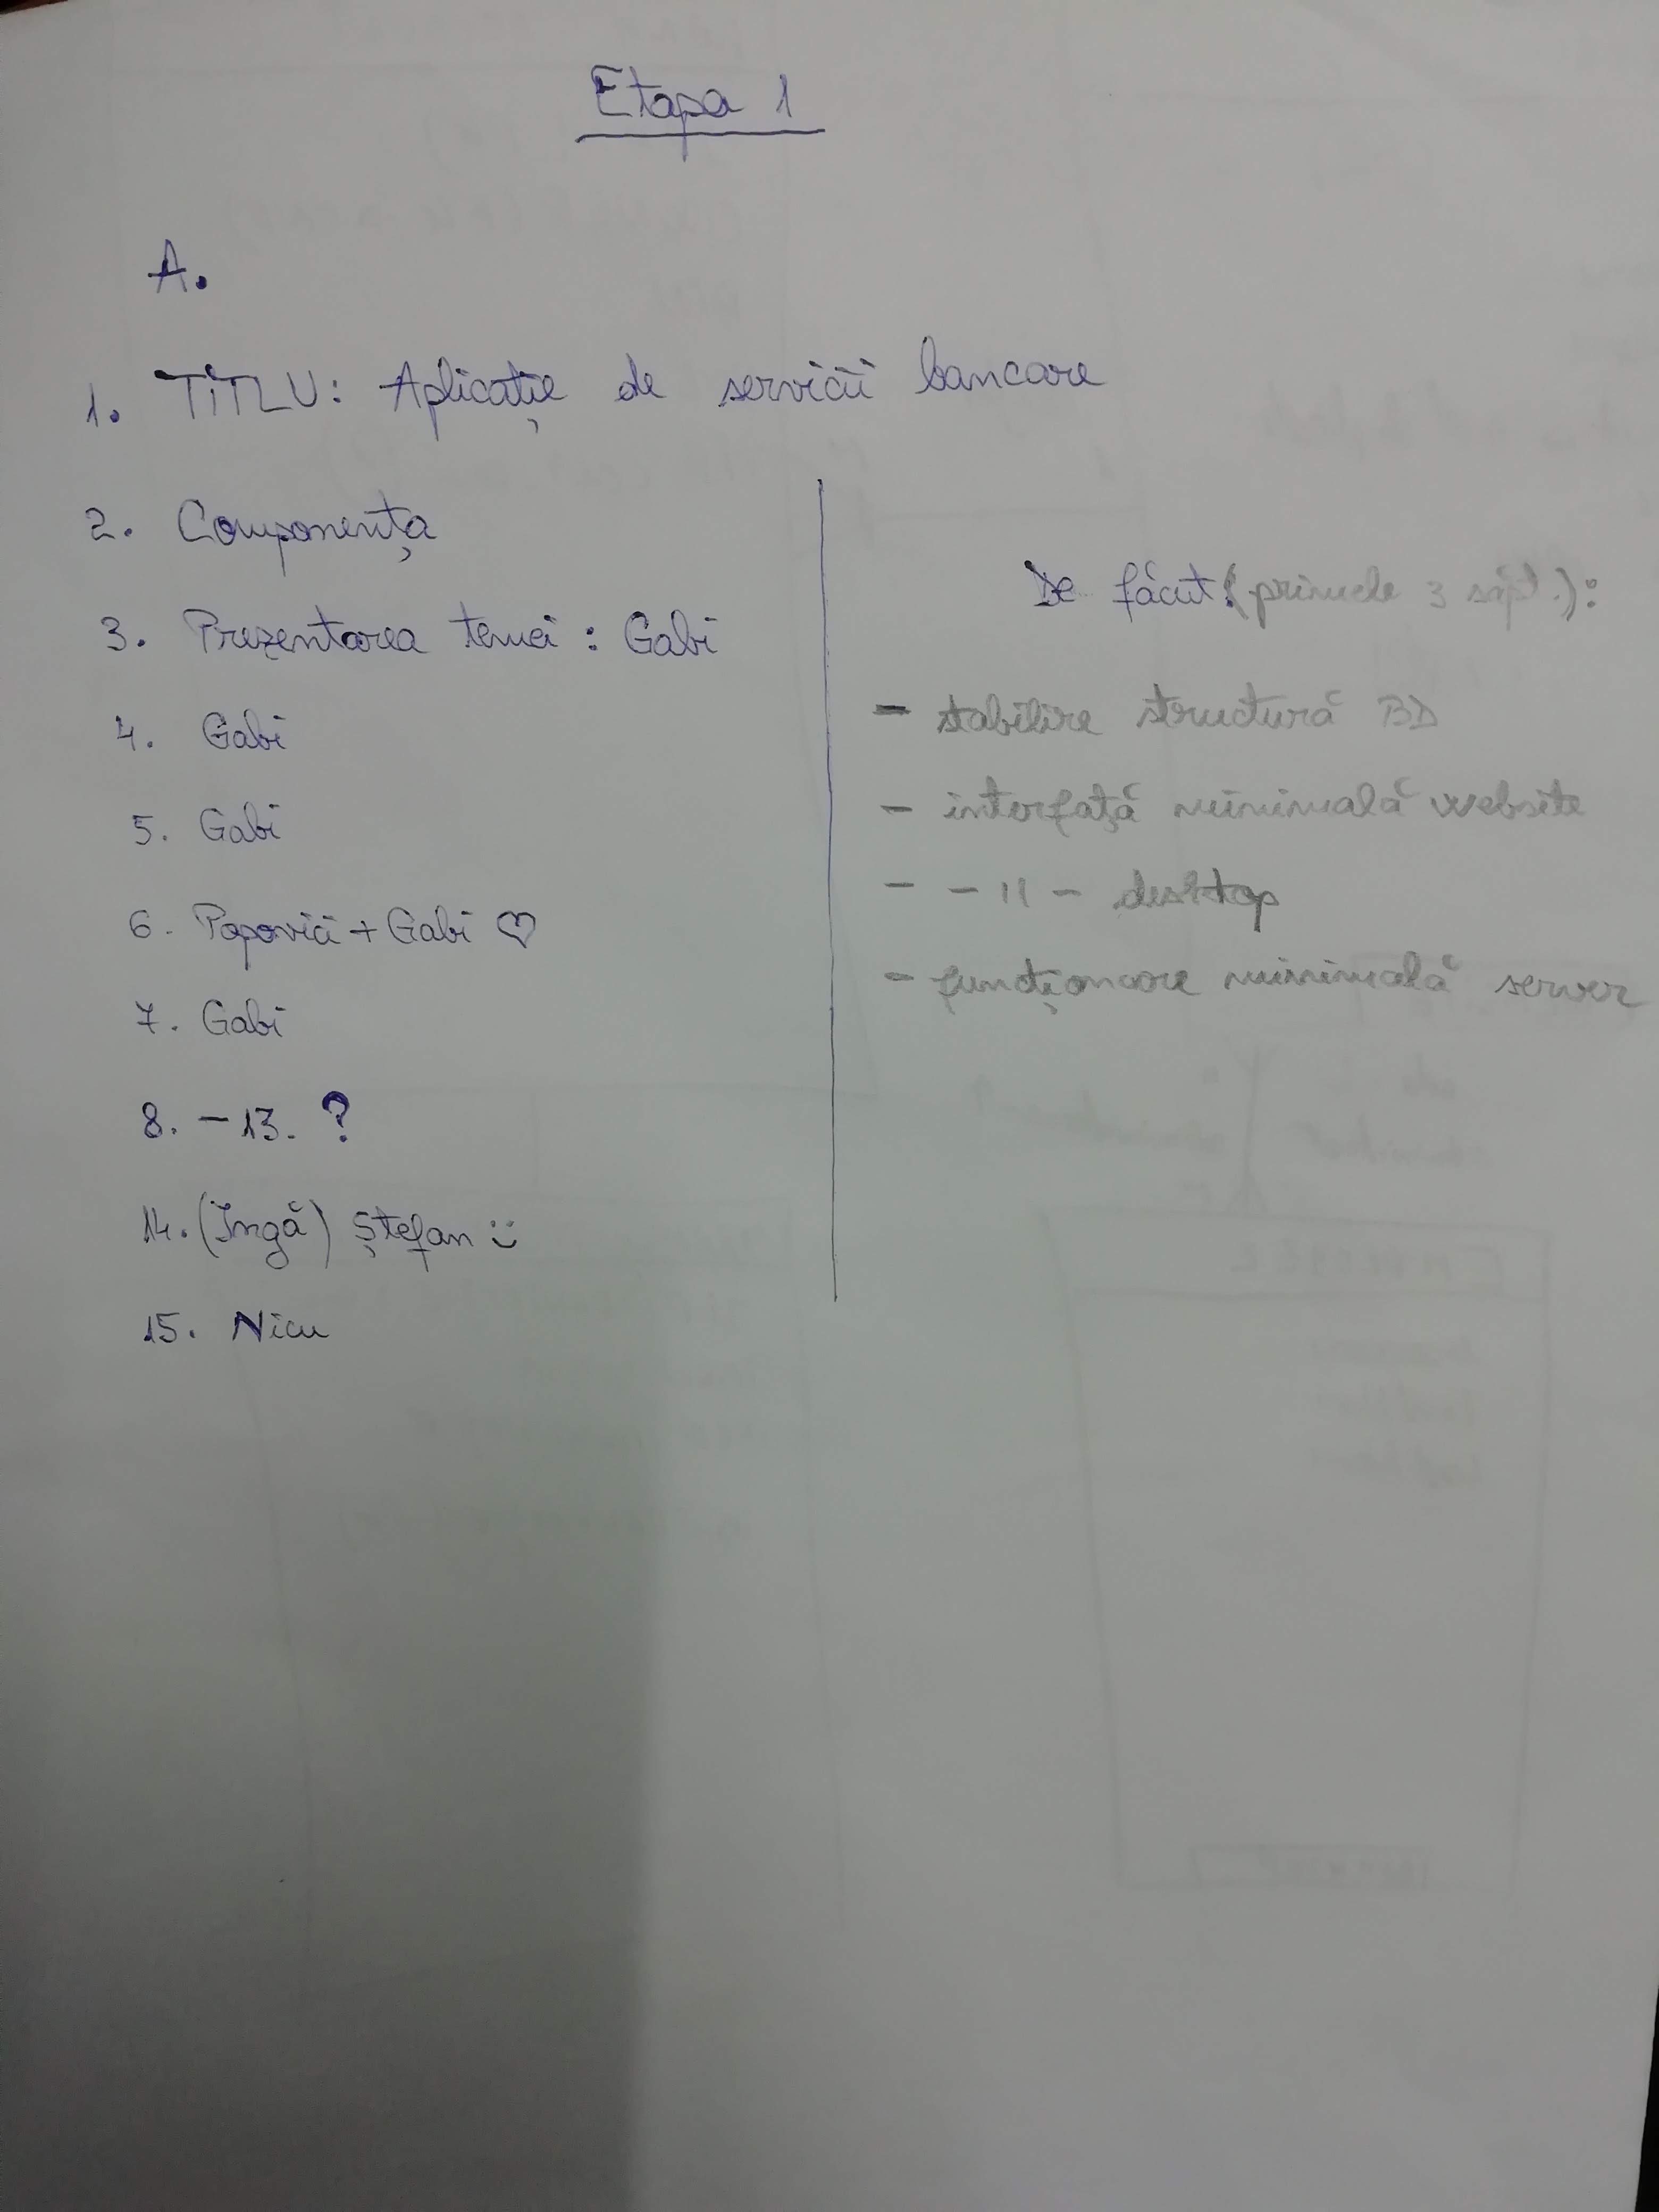 Etapa 1
A.
1. TITLU: Aplicație de servicii bancare
2. Componența
3. Prezentarea temei : Gabi
4. Gabi
5. Gabi
6. Popovici + Gabi ♡
7. Gabi
8. – 13. ?
14. (Îngă) Ștefan :)
15. Nicu
De făcut (primele 3 săpt.):
- stabilire structură BD
- interfață minimală website
- - 11 - desktop
- funcționare minimală server